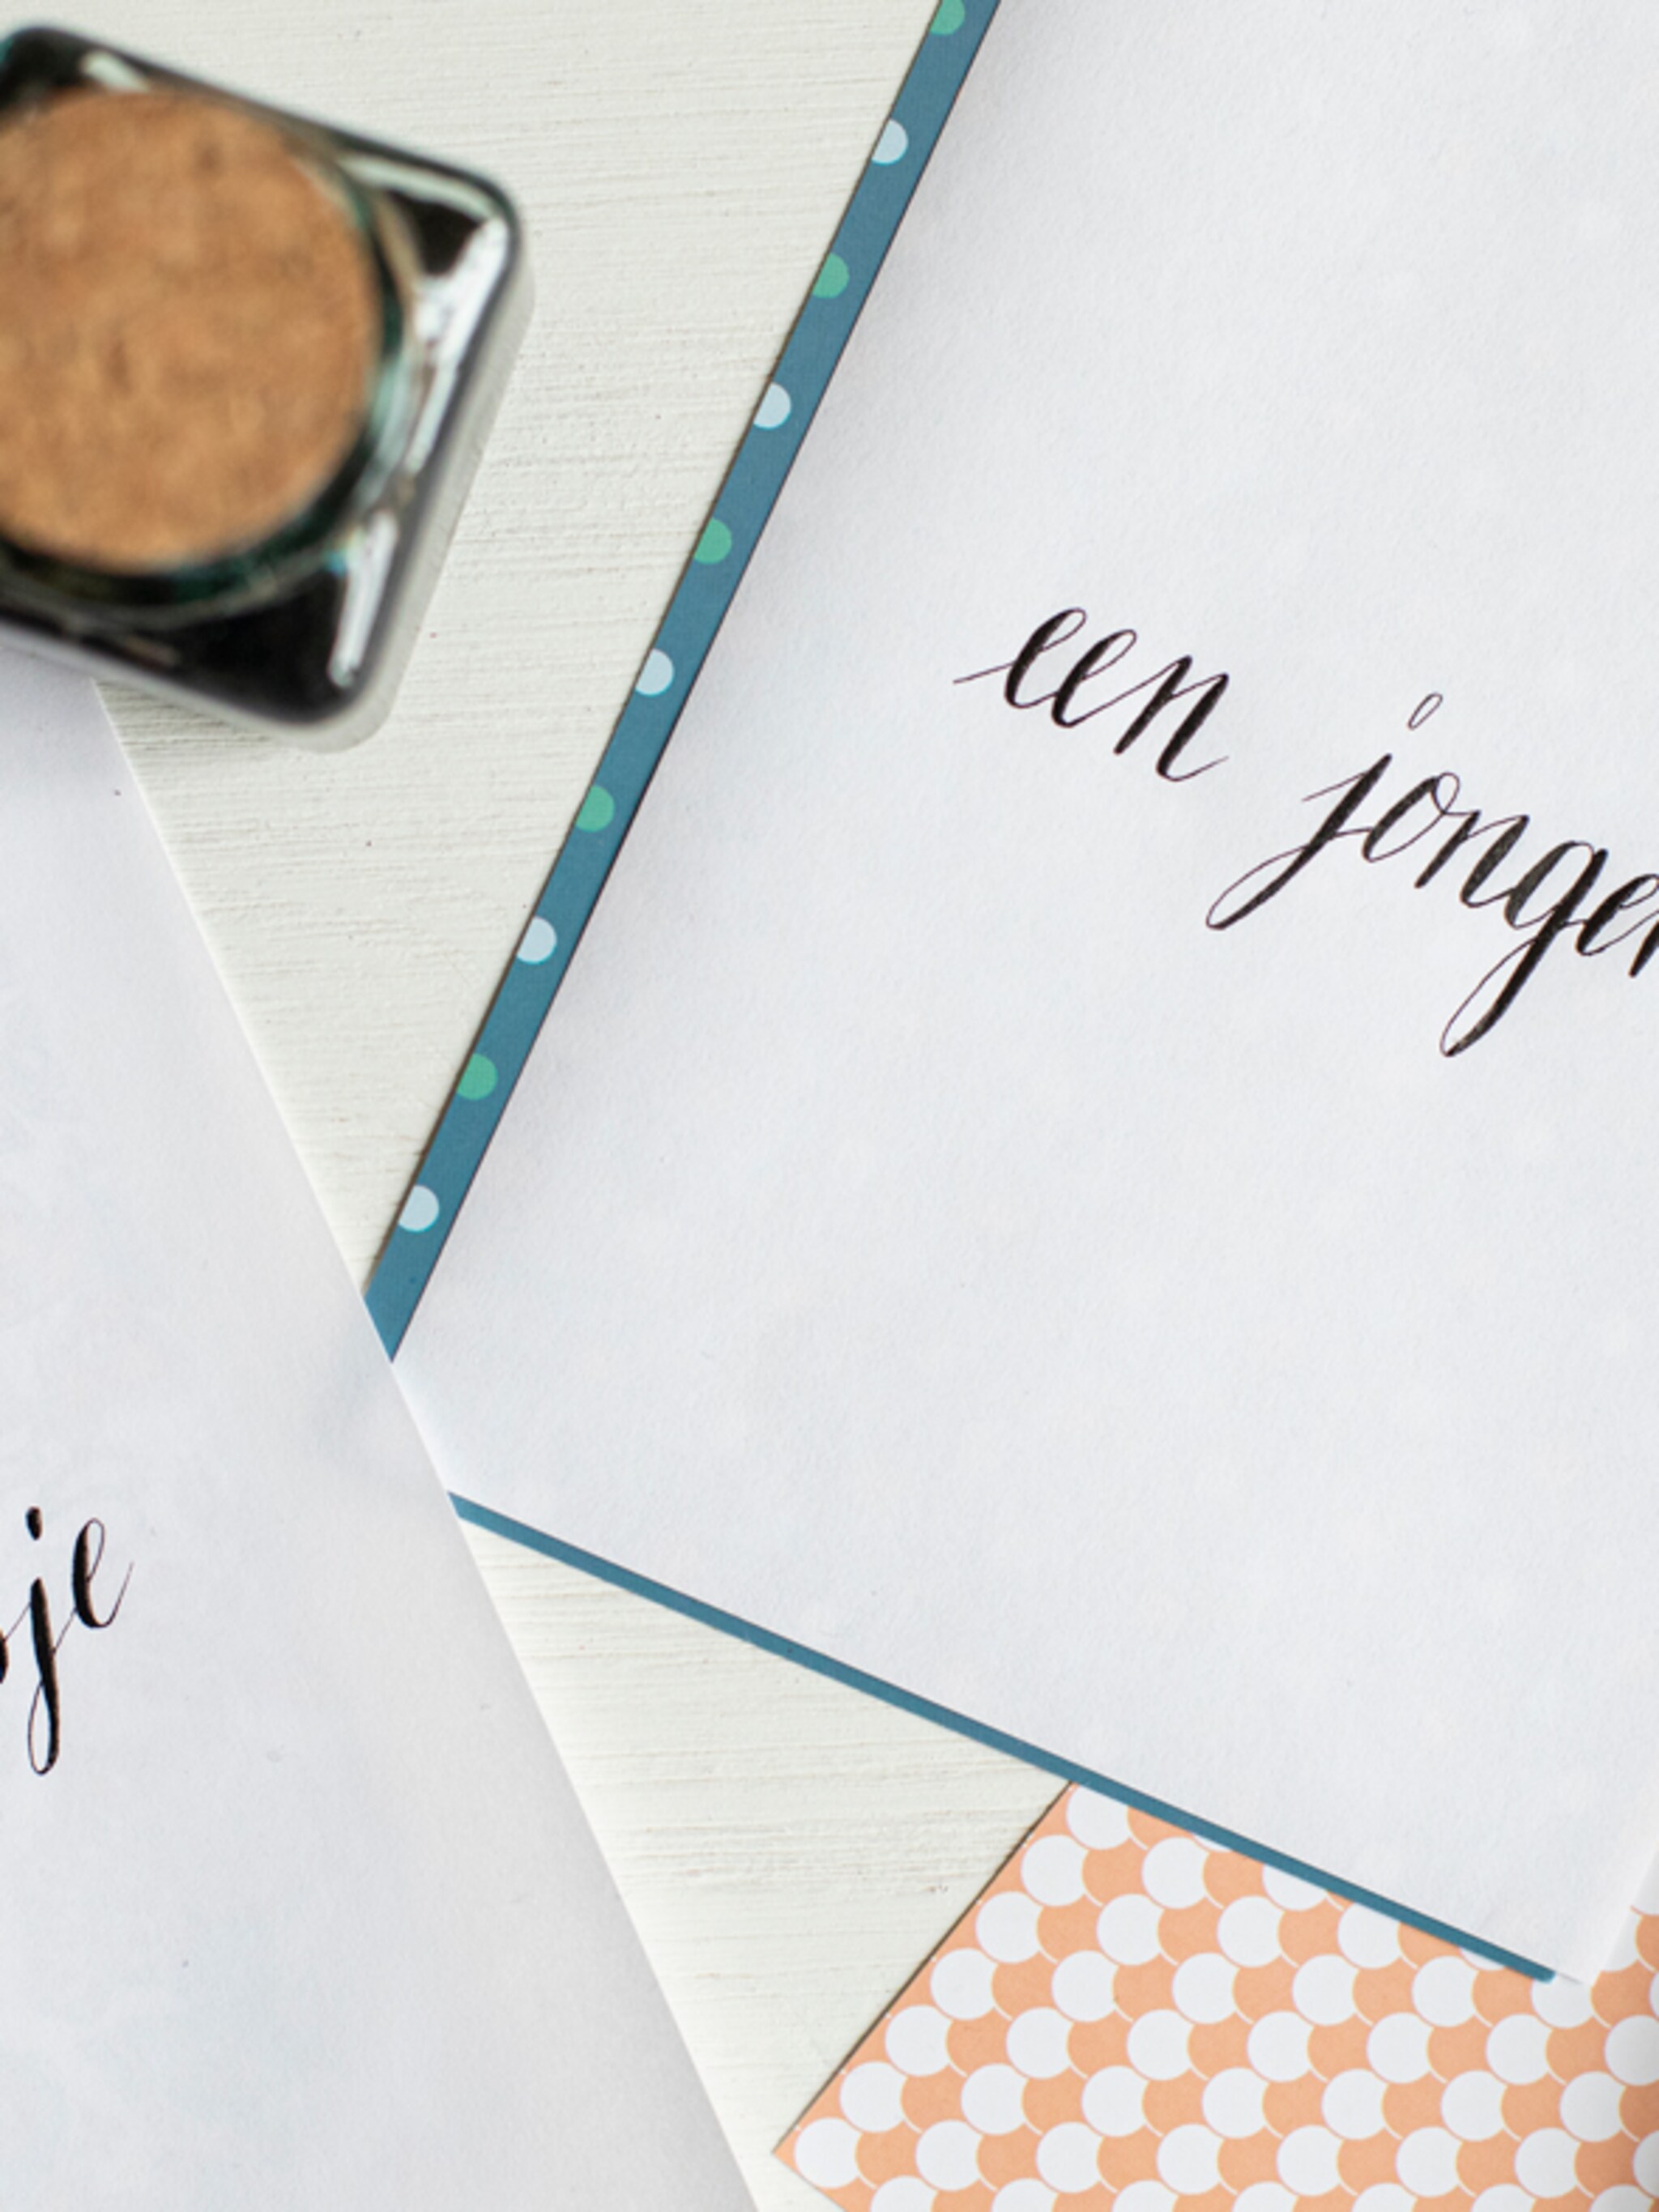 een
jonge
je